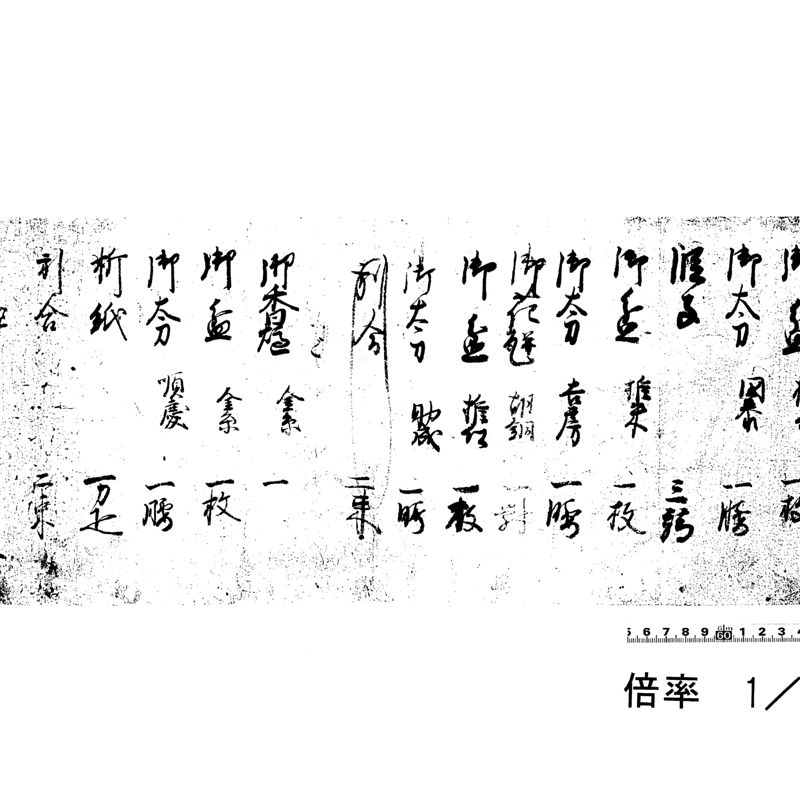 御盆
御太刀 国泰 一腰
段子 三
御盆 堆朱 一枚
御太刀 吉房 一腰
御花瓶 胡銅 一対
御盆 堆紅 一枚
御太刀 助成 一腰
引合 二束
御香炉 金糸 一
御盆 金糸 一枚
御太刀 順慶 一腰
折紙 一万疋
引合 二束
5 6 7 8 9 60 1 2 3 4
倍率 1/